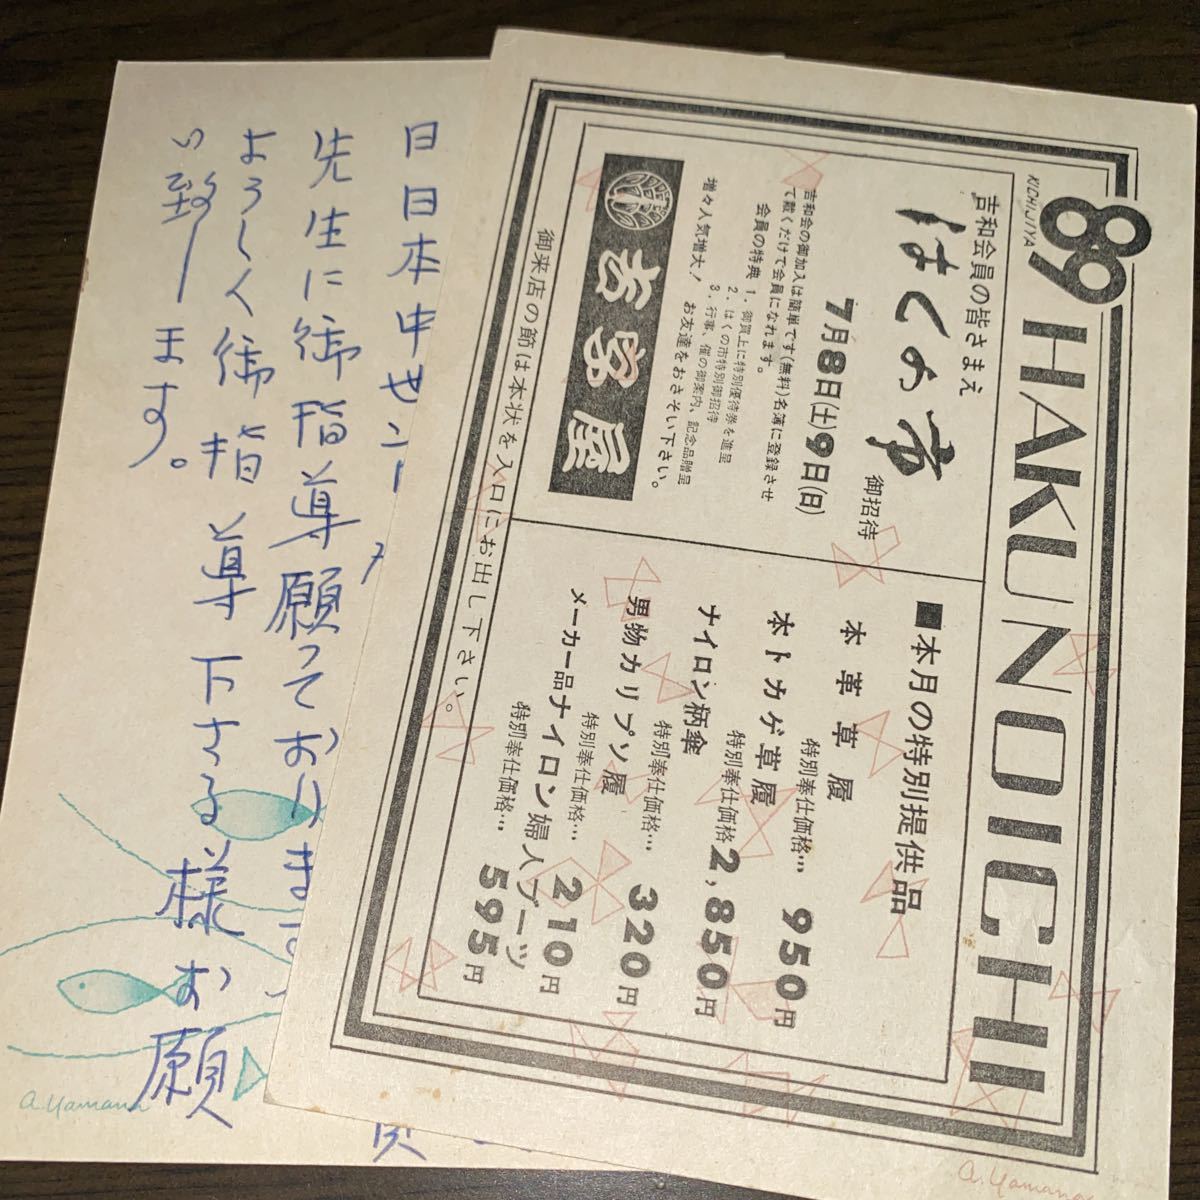 89 HAKUNOICHI
KICHIJIYA
吉和会員の皆さまえ
はくの市
御招待
7月8日(土)9日(日)
吉和会の御加入は簡単です(無料)名簿に登録させ
て戴くだけで会員になれます。
会員の特典 1.御買上に特別優待券を進呈
2.はくの市特別御招待
3.行事、催の御案内、記念品贈呈
増々人気増大! お友達をおさそい下さい。
■本月の特別提供品
本革草履
特別奉仕価格…950円
本トカゲ草履
特別奉仕価格2,850円
ナイロン柄傘
特別奉仕価格…320円
男物カリプソン履
特別奉仕価格…210円
メーカー品ナイロン婦人ブーツ
特別奉仕価格…595円
御来店の節は本状を入口にお出し下さい。
a.Yamana
日日本中せンー
先生に御指導願っております
よろしく御指導下さる様お願
い致します。
a.Yamana